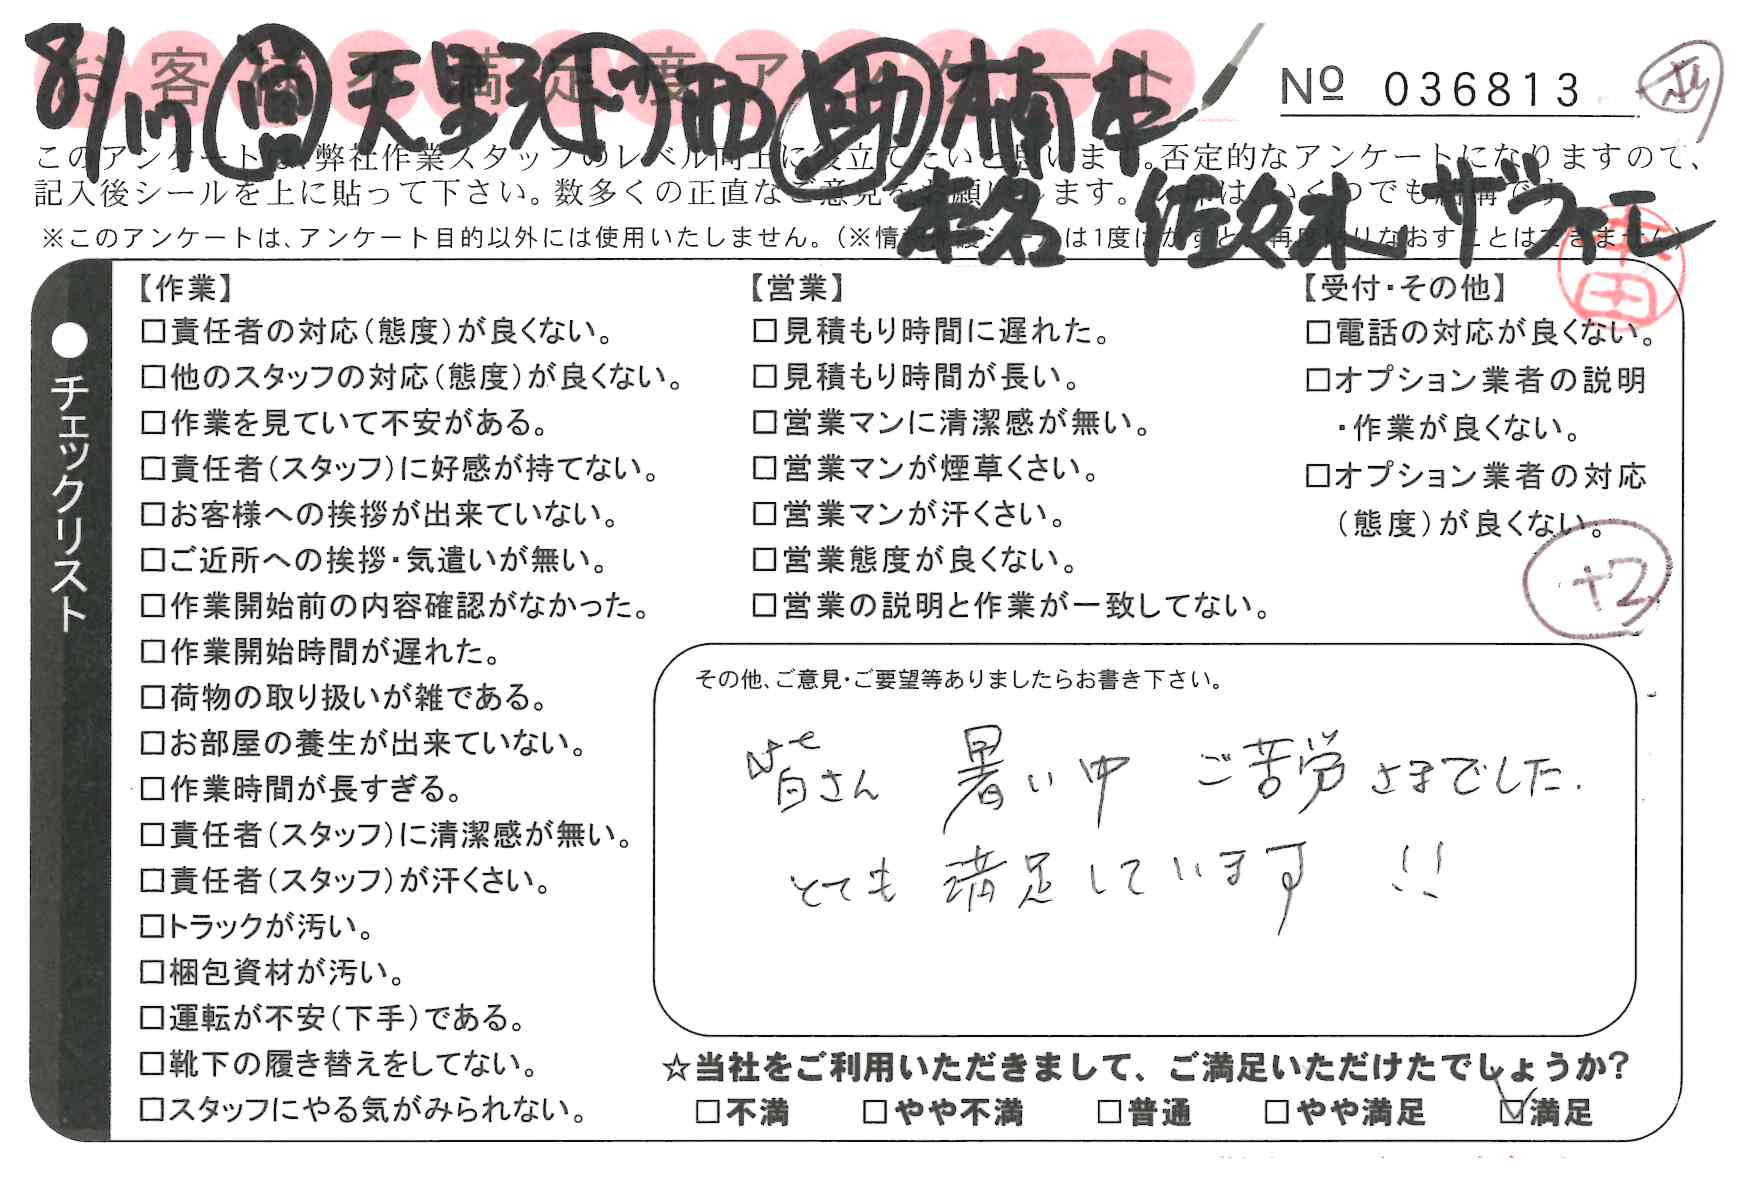 お客様不満足度アンケート
8/17
天野 西 助 楠本
№ 036813
このアンケートは、弊社作業スタッフのレベル向上に役立てたいと思います。否定的なアンケートになりますので、
記入後シールを上に貼って下さい。数多くの正直なご意見をお願いします。
桑名 佐々木 ザライエ
※このアンケートは、アンケート目的以外には使用いたしません。
チェックリスト
【作業】
□責任者の対応(態度)が良くない。
□他のスタッフの対応(態度)が良くない。
□作業を見ていて不安がある。
□責任者(スタッフ)に好感が持てない。
□お客様への挨拶が出来ていない。
□ご近所への挨拶・気遣いが無い。
□作業開始前の内容確認がなかった。
□作業開始時間が遅れた。
□荷物の取り扱いが雑である。
□お部屋の養生が出来ていない。
□作業時間が長すぎる。
□責任者(スタッフ)に清潔感が無い。
□責任者(スタッフ)が汗くさい。
□トラックが汚い。
□梱包資材が汚い。
□運転が不安(下手)である。
□靴下の履き替えをしてない。
□スタッフにやる気がみられない。
【営業】
□見積もり時間に遅れた。
□見積もり時間が長い。
□営業マンに清潔感が無い。
□営業マンが煙草くさい。
□営業マンが汗くさい。
□営業態度が良くない。
□営業の説明と作業が一致してない。
【受付・その他】
□電話の対応が良くない。
□オプション業者の説明
・作業が良くない。
□オプション業者の対応
(態度)が良くない。
+2
その他、ご意見・ご要望等ありましたらお書き下さい。
皆さん 暑い中 ご苦労さまでした.
とても満足しています!!
☆当社をご利用いただきまして、ご満足いただけたでしょうか?
□不満 □やや不満 □普通 □やや満足 ☑満足